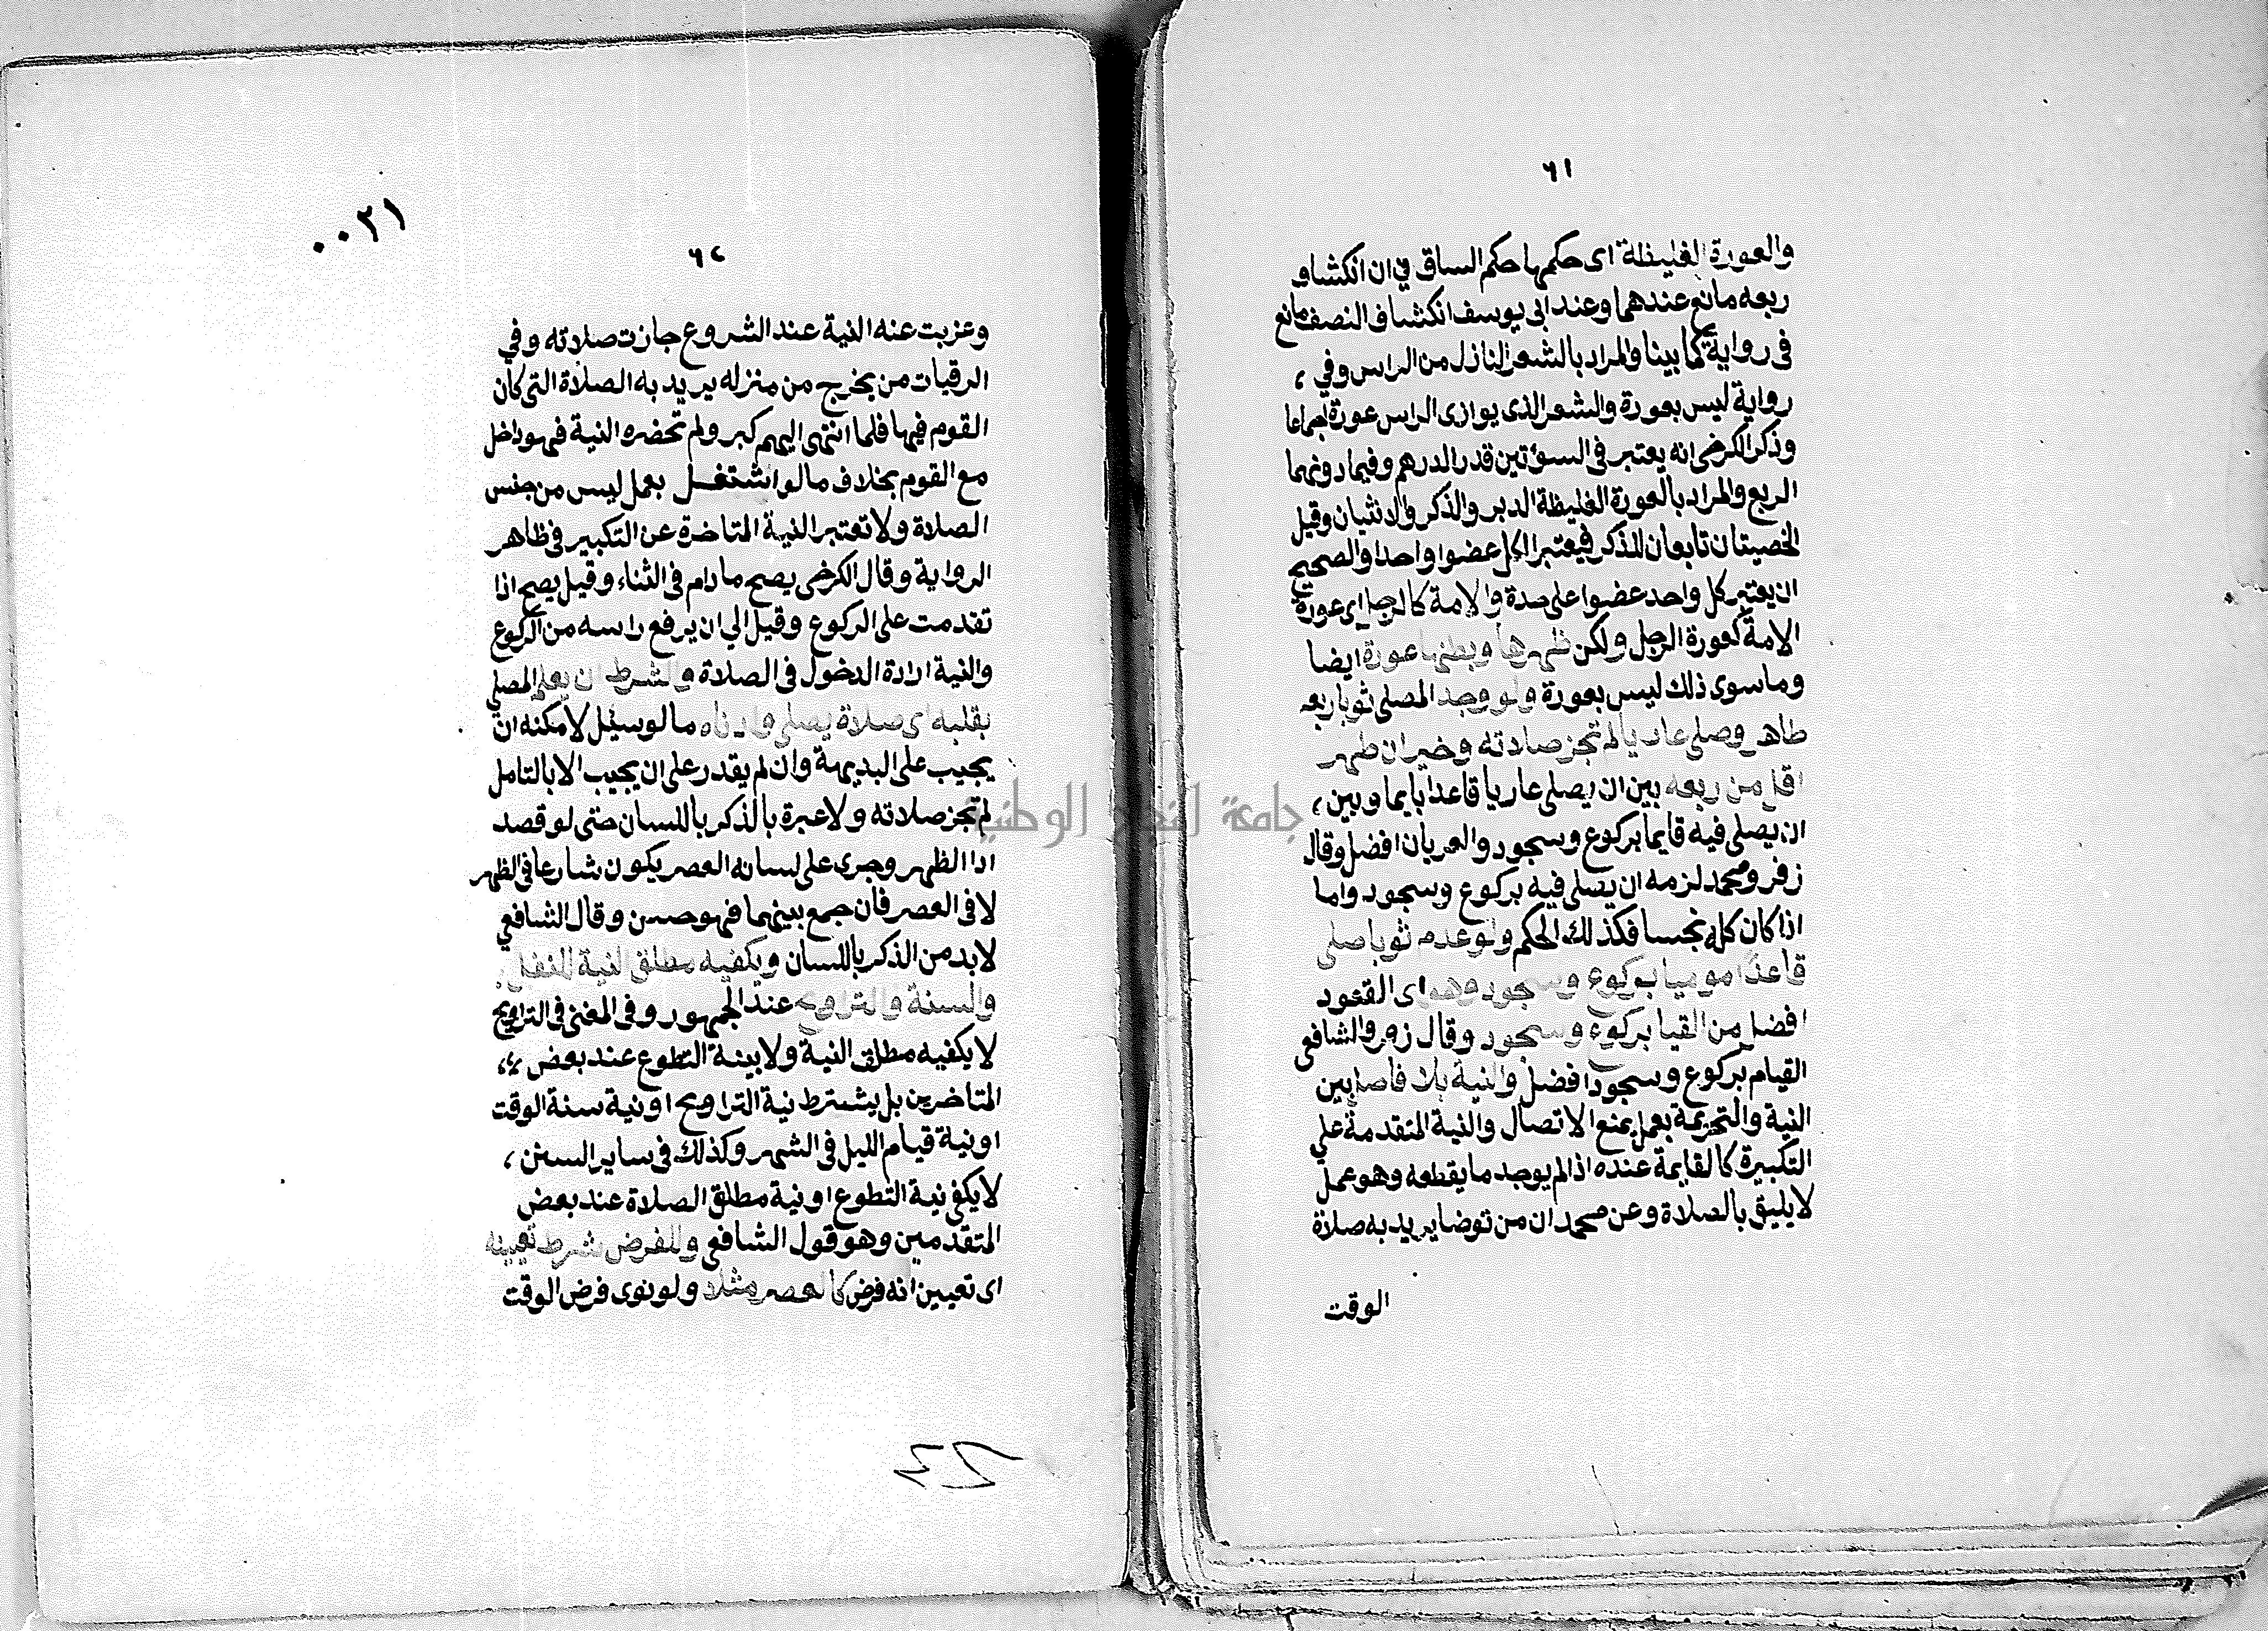 ٦١
والعورة الغليظة اى حكمها حكم الساق في ان انكشاف
ربعه مانع عندهما وعند ابى يوسف انكشاف النصف مانع
فى رواية كما بينا والمراد بالشعر النازل من الراس وفي
رواية ليس بعورة والشعر الذى يوازى الراس عورة اجماعا
وذكر الكرخى انه يعتبر فى السؤتين قدر الدرهم وفيما دونهما
الربع والمراد بالعورة الغليظة الدبر والذكر والانثيان وقيل
الخصيتان تابعان للذكر فيعتبر الكل عضوا واحدا والصحيح
ان يعتبر كل واحد عضوا على حدة والامة كالرجل اى عورة
الامة كعورة الرجل ولكن ظهرها وبطنها عورة ايضا
وما سوى ذلك ليس بعورة ولو وجد المصلى ثوبا ربعه
طاهر وصلى عاريا لم تجز صلاته وخير ان طهر
اقل من ربعه بين ان يصلى عاريا قاعدا بايما وبين
ان يصلى فيه قايما بركوع وسجود والعريان افضل وقال
زفر ومحمد لزمه ان يصلى فيه بركوع وسجود واما
اذا كان كله نجسا فكذلك الحكم ولو عدم ثوبا صلى
قاعدا موميا بركوع وسجود وهو اى القعود
افضل من القيا بركوع وسجود وقال زفر والشافعى
القيام بركوع وسجود افضل والنية بلا فاصل بين
النية والتحريمة بعمل يمنع الاتصال والنية المتقدمة على
التكبيرة كالقايمة عنده اذا لم يوجد ما يقطعه وهو عمل
لا يليق بالصلاة وعن محمد ان من توضا يريد به صلاة
الوقت
٠٠٣١
٦٢
وعزبت عنه النية عند الشروع جازت صلاته وفي
الرقيات من يخرج من منزله يريد به الصلاة التى كان
القوم فيها فلما انتهى اليهم كبر ولم تحضره النية فهو داخل
مع القوم بخلاف ما لو اشتغل بعمل ليس من جنس
الصلاة ولا تعتبر النية المتاخرة عن التكبير فى ظاهر
الرواية وقال الكرخى يصح ما دام فى الثناء وقيل يصح اذا
تقدمت على الركوع وقيل الي ان يرفع راسه من الركوع
والنية ارادة الدخول فى الصلاة والشرط ان يعلم المصلي
بقلبه اى صلاة يصلي وادناه ما لو سيل لامكنه ان
يجيب على البديهة وان لم يقدر على ان يجيب الا بالتامل
لم تجز صلاته ولا عبرة بالذكر باللسان حتى لو قصد
ادا الظهر وجرى على لسانه العصر يكون شارعا فى الظهر
لا فى العصر فان جمع بينهما فهو حسن وقال الشافعي
لا بد من الذكر باللسان ويكفيه مطلق النية للنفل
والسنة والتراويح عند الجمهور وفى المغنى فى التراويح
لا يكفيه مطلق النية ولا بينة التطوع عند بعض
المتاخرين بل يشترط نية التراويح او نية سنة الوقت
او نية قيام الليل فى الشهر وكذلك فى ساير السنن
لا يكفى نية التطوع او نية مطلق الصلاة عند بعض
المتقدمين وهو قول الشافعي وللفرض شرط تعيينه
اى تعيين انه فرض كالعصر مثلا ولو نوى فرض الوقت
جامعة النجاح الوطنية